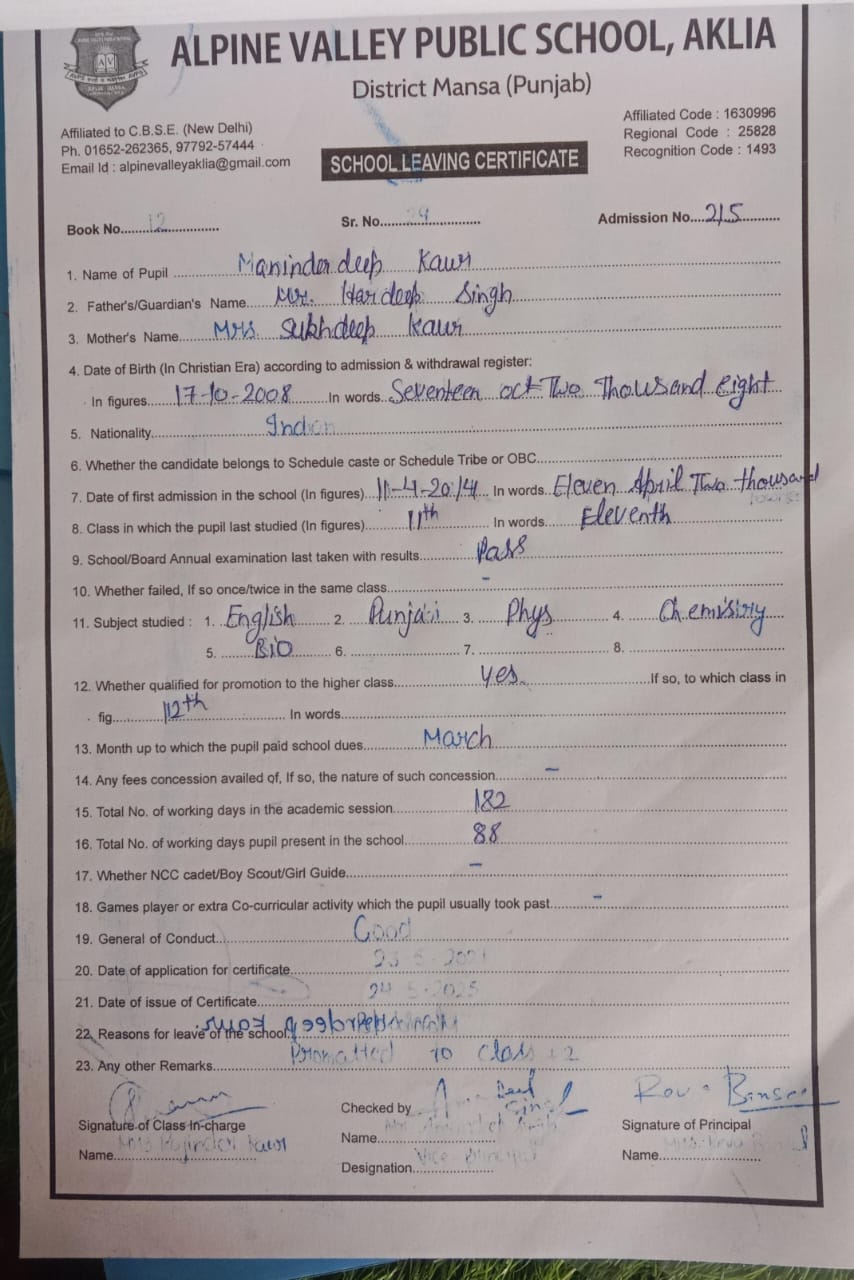 ALPINE VALLEY PUBLIC SCHOOL, AKLIA
District Mansa (Punjab)
Affiliated to C.B.S.E. (New Delhi)
Ph. 01652-262365, 97792-57444
Email Id : alpinevalleyaklia@gmail.com
Affiliated Code : 1630996
Regional Code : 25828
Recognition Code : 1493
SCHOOL LEAVING CERTIFICATE
Book No. 12 Sr. No. Admission No. 215
1. Name of Pupil Maninder deep Kaur
2. Father's/Guardian's Name Mr. Hardeep Singh
3. Mother's Name Mrs Sukhdeep Kaur
4. Date of Birth (In Christian Era) according to admission & withdrawal register:
In figures 17-10-2008 In words Seventeen oct Two Thousand eight
5. Nationality Indian
6. Whether the candidate belongs to Schedule caste or Schedule Tribe or OBC
7. Date of first admission in the school (In figures) 11-4-2014 In words Eleven April Two thousand
8. Class in which the pupil last studied (In figures) 11th In words Eleventh
9. School/Board Annual examination last taken with results Pass
10. Whether failed, If so once/twice in the same class -
11. Subject studied : 1. English 2. Punjabi 3. Phys 4. Chemistry
5. Bio 6. 7. 8.
12. Whether qualified for promotion to the higher class yes If so, to which class in
fig. 12th In words
13. Month up to which the pupil paid school dues March
14. Any fees concession availed of, If so, the nature of such concession -
15. Total No. of working days in the academic session 182
16. Total No. of working days pupil present in the school 88
17. Whether NCC cadet/Boy Scout/Girl Guide -
18. Games player or extra Co-curricular activity which the pupil usually took past -
19. General of Conduct Good
20. Date of application for certificate
21. Date of issue of Certificate 24 5-2025
22. Reasons for leave of the school
23. Any other Remarks Promotted to class 12
Signature of Class In-charge
Name
Checked by
Name
Designation Vice Principal
Signature of Principal
Name